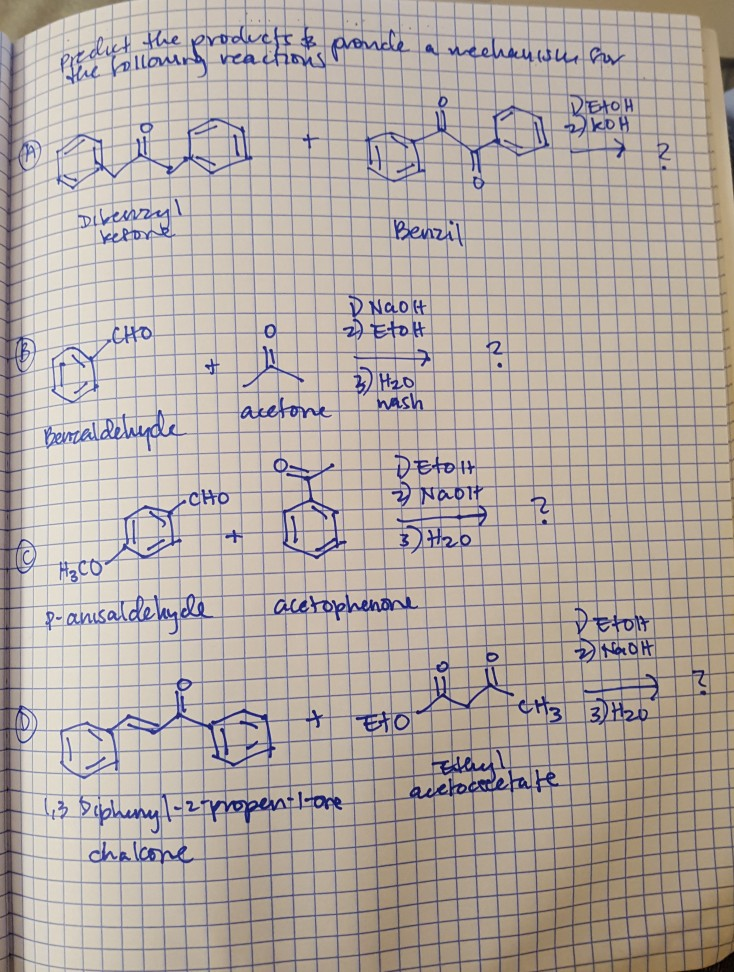 Predict the products & provide a mechanism for
the following reactions
A
O
+
O
O
1) EtOH
2) KOH
?
Dibenzyl
ketone
Benzil
B
CHO
+
O
1) NaOH
2) EtOH
3) H2O
wash
?
Benzaldehyde
acetone
C
CHO
H3CO
+
O
1) EtOH
2) NaOH
3) H2O
?
p-anisaldehyde
acetophenone
D
O
+
EtO
O
O
CH3
1) EtOH
2) NaOH
3) H2O
?
1,3 Diphenyl-2-propen-1-one
chalcone
Ethyl
acetoacetate